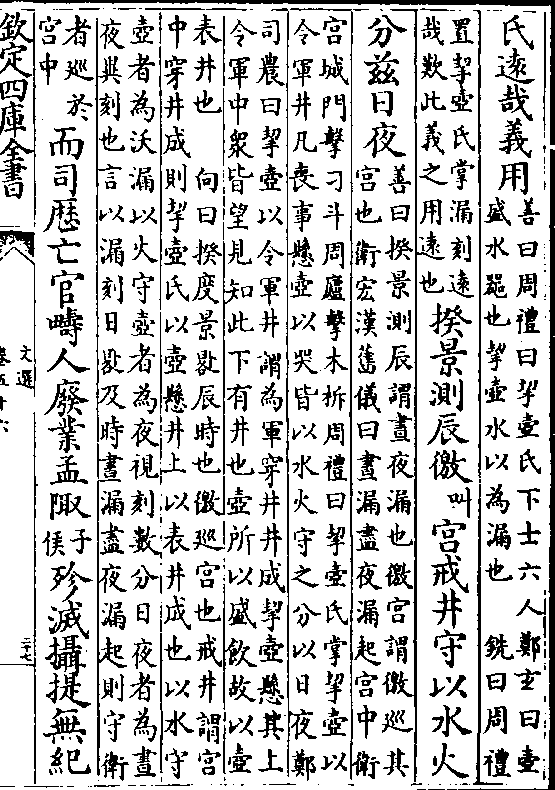 氏遠哉義用善曰周禮曰挈壺氏下士六人鄭玄曰壺
盛水器也挈壺水以為漏也銑曰周禮
置挈壺氏掌漏刻遠
哉歎此義之用遠也揆景測辰徼叫宫戒井守以水火
分兹日夜善曰揆景測辰謂晝夜漏也徼宫謂徼巡其
宫也衛宏漢舊儀曰晝漏盡夜漏起宫中衛
宫城門擊刁斗周廬擊木柝周禮曰挈壺氏掌挈壺以
令軍井凡喪事懸壺以哭皆以水火守之分以日夜鄭
司農曰挈壺以令軍井謂為軍穿井井成挈壺懸其上
令軍中衆皆望見知此下有井也壺所以盛飲故以壺
表井也向曰揆度景晷辰時也徼巡宫也戒井謂宫
中穿井成則挈壺氏以壺懸井上以表井成也以水守
壺者為沃漏以火守壺者為夜視刻數分日夜者為晝
夜異刻也言以漏刻日晷及時晝漏盡夜漏起則守衛
者巡於
宫中而司歴亡官疇人廢業孟陬子侯殄滅攝提無紀
欽定四庫全書
文選
卷五十六
二十七